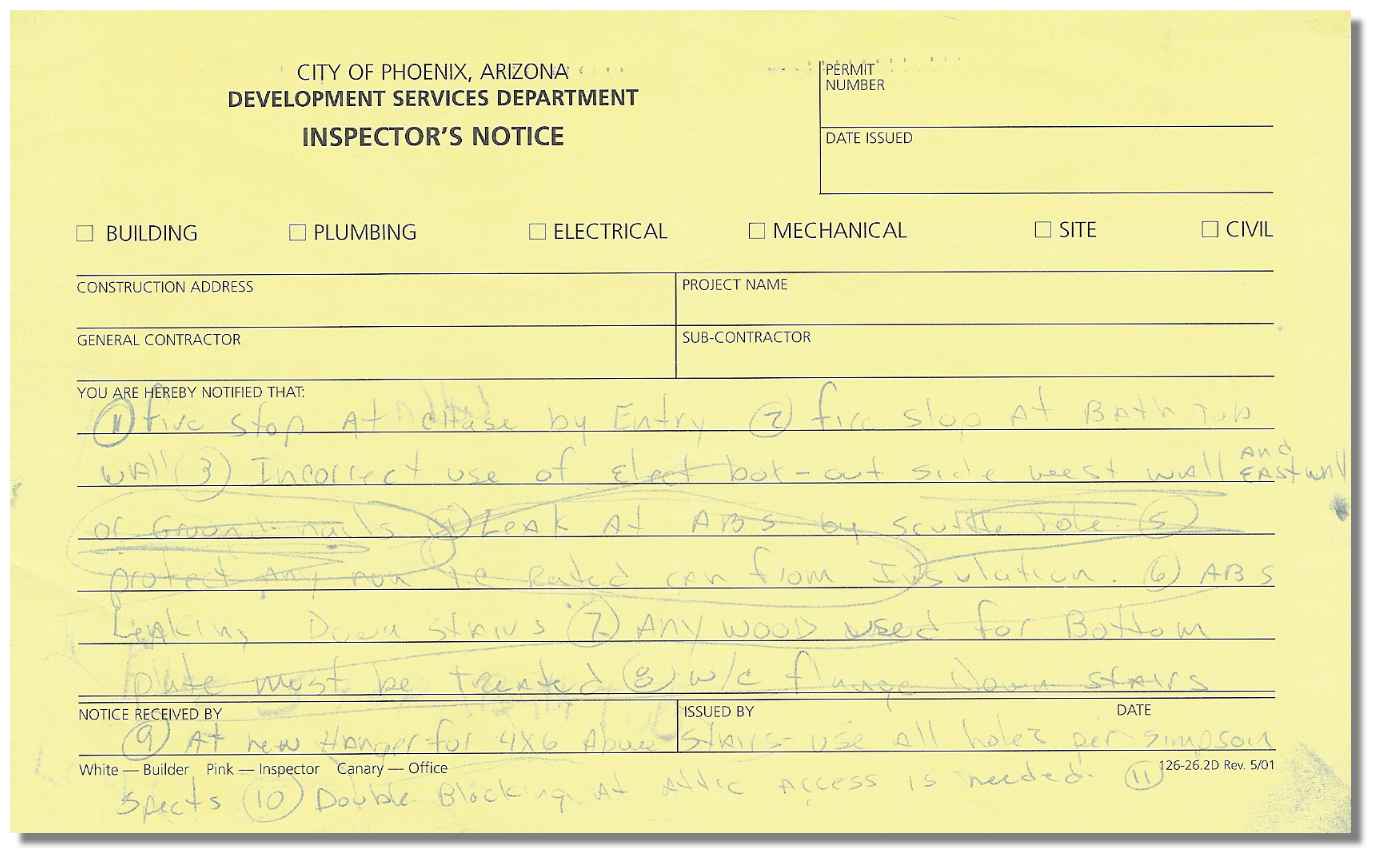 CITY OF PHOENIX, ARIZONA
DEVELOPMENT SERVICES DEPARTMENT
INSPECTOR'S NOTICE
PERMIT
NUMBER
DATE ISSUED
BUILDING PLUMBING ELECTRICAL MECHANICAL SITE CIVIL
CONSTRUCTION ADDRESS PROJECT NAME
GENERAL CONTRACTOR SUB-CONTRACTOR
YOU ARE HEREBY NOTIFIED THAT:
① fire stop At chase by Entry ② fire stop At Bath Tub
wAll ③ Incorrect use of Elect box-out side west wall and EAST wAll
or Ground ④ Leak At ABS by scuttle hole ⑤
protect Any non IC Rated can from Insulation. ⑥ ABS
Leaking Down stairs ⑦ Any wood used for Bottom
plate must be treated ⑧ w/c flange Down stairs
NOTICE RECEIVED BY ISSUED BY DATE
⑨ At new Hanger for 4X6 Above stairs - use all holes per simpson
White — Builder Pink — Inspector Canary — Office 126-26.2D Rev. 5/01
spects ⑩ Double Blocking At Attic Access is needed. ⑪